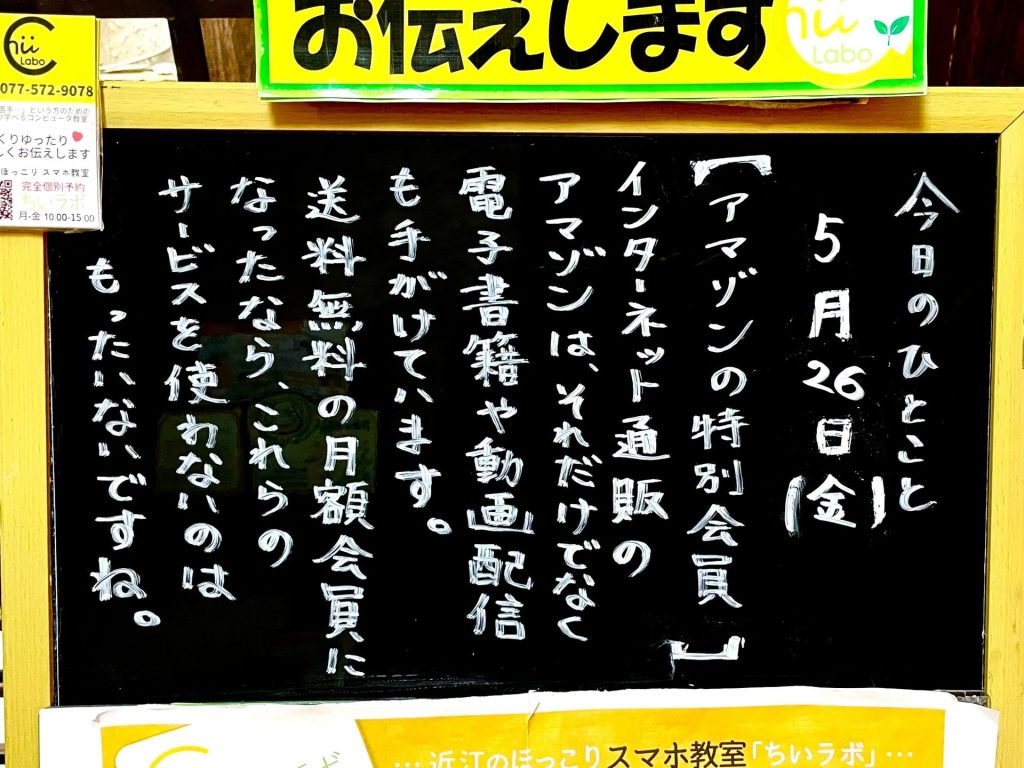 お伝えします
hii
Labo
Chii
Labo
077-572-9078
という方のための
学べるコンピュータ教室
くりゆったり
しくお伝えします
ほっこり スマホ教室
完全個別予約
ちいラボ
月-金 10:00-15:00
今日のひとこと
5月26日(金)
【アマゾンの特別会員】
インターネット通販の
アマゾンは、それだけでなく
電子書籍や動画配信
も手がけています。
送料無料の月額会員に
なったなら、これらの
サービスを使わないのは
もったいないですね。
…近江のほっこりスマホ教室「ちいラボ」…